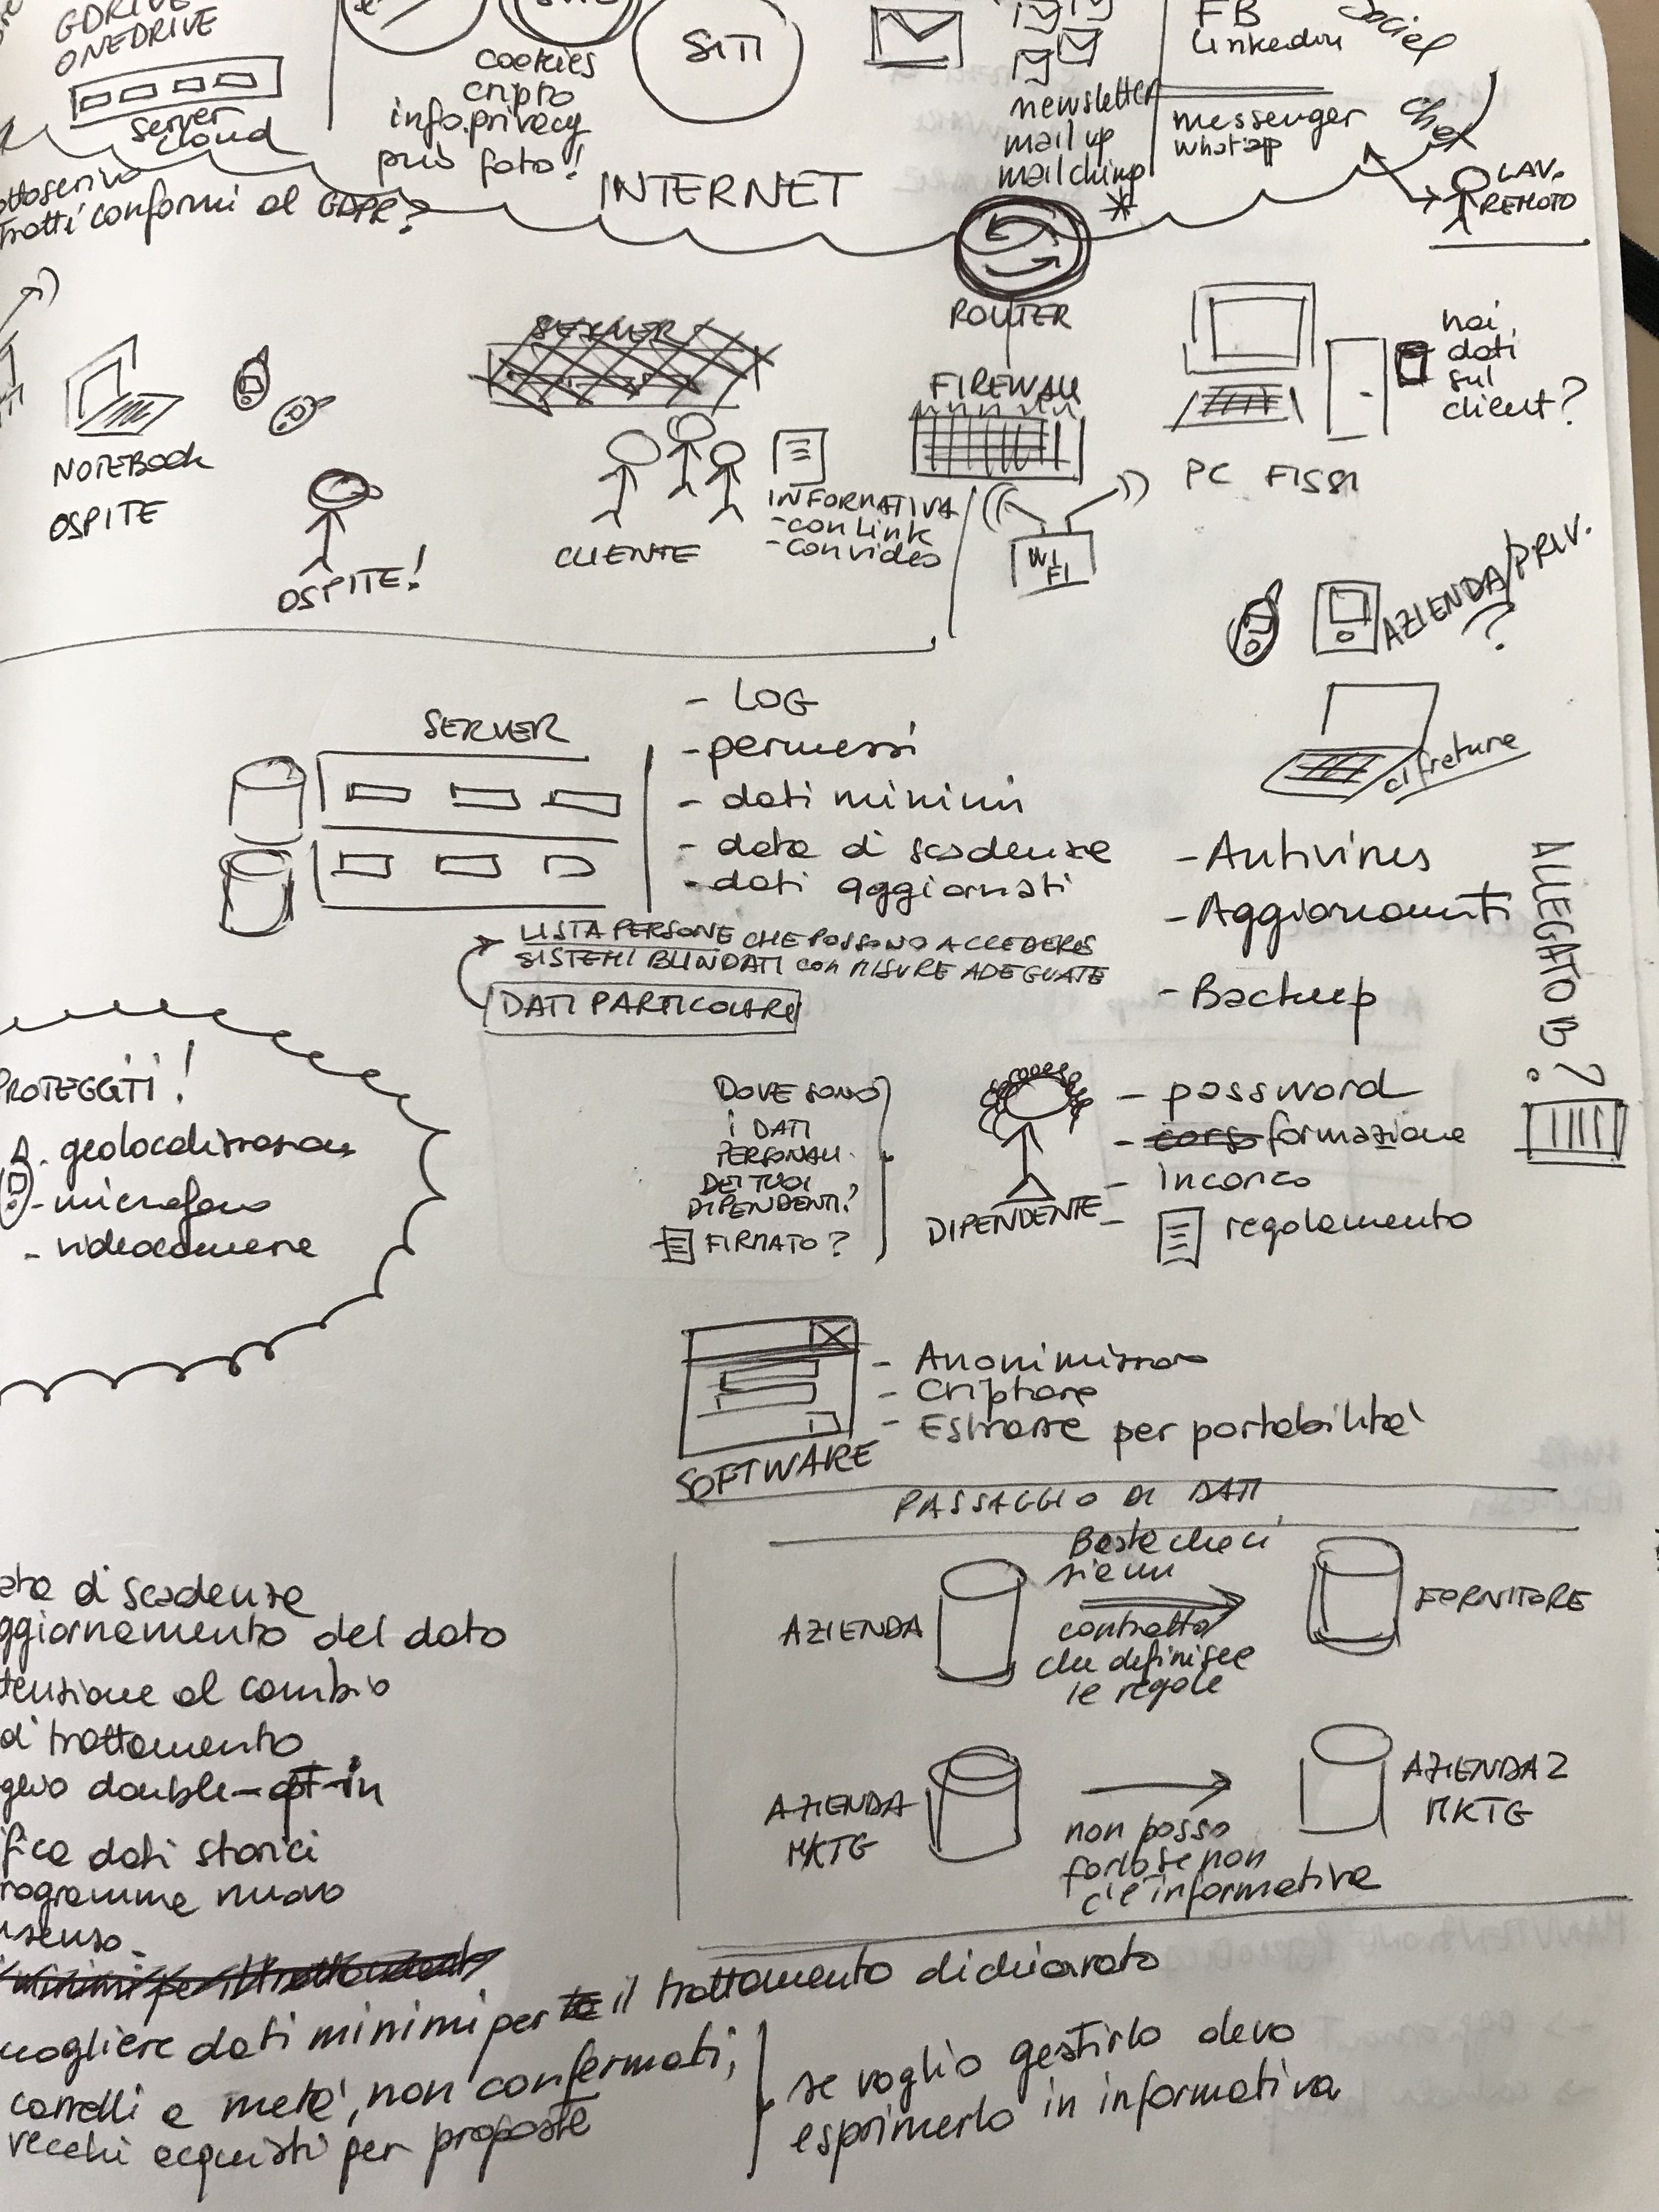 GDRIVE
ONEDRIVE
server
cloud
cookies
cripto
info.privacy
può foto!
SITI
newsletter
mail up
mailchimp
*
FB
linkedin
social
messenger
what'app
chat
INTERNET
conformi al GDPR?
LAV.
REMOTO
ROUTER
SERVER
FIREWALL
hai
dati
sul
client?
PC FISSI
NOTEBOOK
OSPITE
OSPITE!
CLIENTE
INFORMATIVA
- con link
- con video
WI
FI
AZIENDA/PRIV.
?
cifrature
SERVER
- LOG
- permessi
- dati minimi
- data di scadenze
- dati aggiornati
LISTA PERSONE CHE POSSONO ACCEDERE
SISTEMI BLINDATI con MISURE ADEGUATE
DATI PARTICOLARI
- Antivirus
- Aggiornamenti
- Backup
ALLEGATO B?
PROTEGGITI!
- geolocalizzazione
- microfono
- videocamere
DOVE SONO
I DATI
PERSONALI
DEI TUOI
DIPENDENTI?
FIRMATO?
DIPENDENTE
- password
- corso formazione
- incarico
- regolamento
SOFTWARE
- Anonimizzare
- Criptare
- Estrarre per portabilità
PASSAGGIO DI DATI
AZIENDA
Basta che ci
sia un
contratto
che definisce
le regole
FORNITORE
AZIENDA
MKTG
non posso
farlo se non
c'è informativa
AZIENDA 2
MKTG
di scadenze
del dato
al cambio
di trattamento
double-opt-in
dati storici
nuovo
minimi per il trattamento
dati minimi per il trattamento dichiarato
carrelli a metà, non confermati,
vecchi acquisti per proposte
se voglio gestirlo devo
esprimerlo in informativa